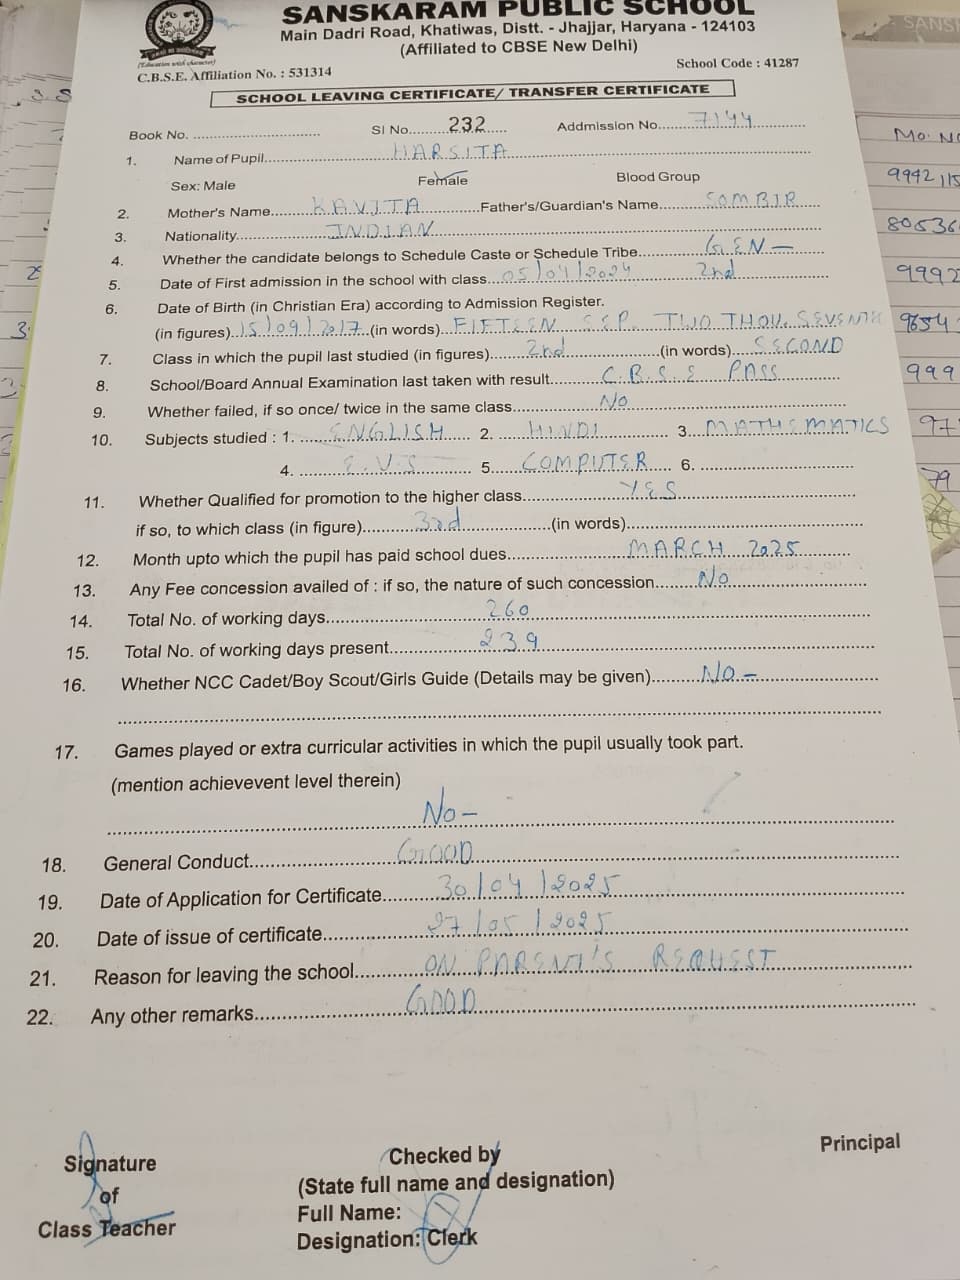 SANSKARAM PUBLIC SCHOOL
Main Dadri Road, Khatiwas, Distt. - Jhajjar, Haryana - 124103
(Affiliated to CBSE New Delhi)
(Education with character)
C.B.S.E. Affiliation No. : 531314 School Code : 41287
SCHOOL LEAVING CERTIFICATE/ TRANSFER CERTIFICATE
Book No. Sl No. 232 Addmission No. 7144
1. Name of Pupil HARSITA
Sex: Male Female Blood Group
2. Mother's Name KAVITA Father's/Guardian's Name SOMBIR
3. Nationality INDIAN
4. Whether the candidate belongs to Schedule Caste or Schedule Tribe GEN -
5. Date of First admission in the school with class 05/04/2024 2nd
6. Date of Birth (in Christian Era) according to Admission Register.
(in figures) 15/09/2017 (in words) FIFTEEN SEP. TWO THOU. SEVENTH
7. Class in which the pupil last studied (in figures) 2nd (in words) SECOND
8. School/Board Annual Examination last taken with result C.B.S.E PASS
9. Whether failed, if so once/ twice in the same class NO
10. Subjects studied : 1. ENGLISH 2. HINDI 3. MATHEMATICS
4. E.V.S 5. COMPUTER 6.
11. Whether Qualified for promotion to the higher class YES
if so, to which class (in figure) 3rd (in words)
12. Month upto which the pupil has paid school dues MARCH 2025
13. Any Fee concession availed of : if so, the nature of such concession No
14. Total No. of working days 260
15. Total No. of working days present 239
16. Whether NCC Cadet/Boy Scout/Girls Guide (Details may be given) No -
17. Games played or extra curricular activities in which the pupil usually took part.
(mention achievevent level therein)
No -
18. General Conduct GOOD
19. Date of Application for Certificate 30/04/2025
20. Date of issue of certificate 27/05/2025
21. Reason for leaving the school ON PARENT'S REQUEST
22. Any other remarks GOOD
Signature
of
Class Teacher
Checked by
(State full name and designation)
Full Name:
Designation: Clerk
Principal
SANS
Mo. No